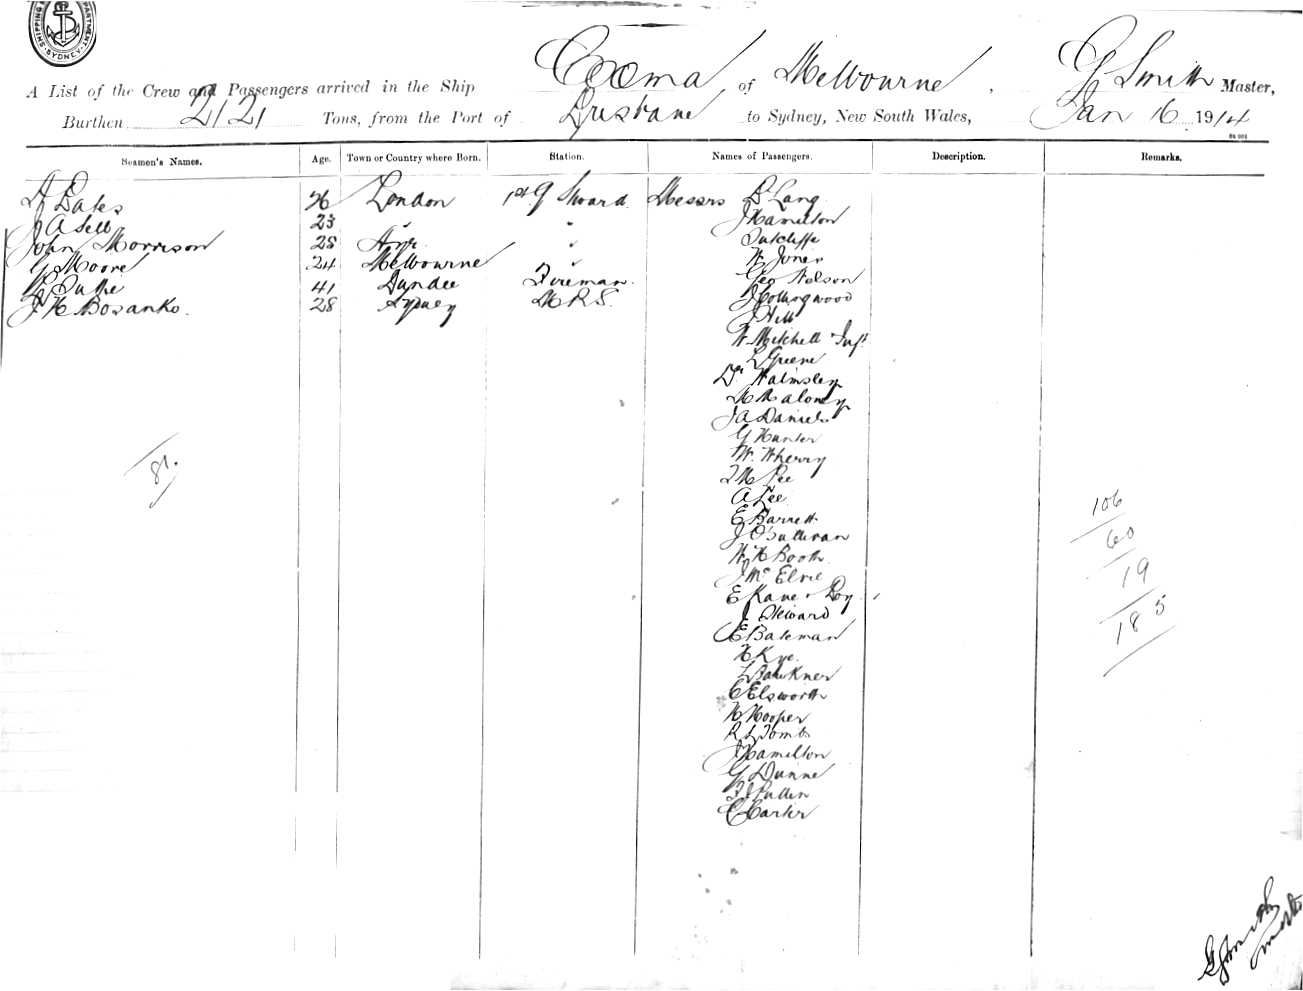 SHIPPING DEPARTMENT SYDNEY
A List of the Crew and Passengers arrived in the Ship Cooma of Melbourne, G Smith Master,
Burthen 2121 Tons, from the Port of Brisbane to Sydney, New South Wales, Jan 16 1914
Seamen's Names. Age. Town or Country where Born. Station. Names of Passengers. Description. Remarks.
A Bates 26 London 1st G Steward Messrs D Lang
J A Sell 23 " " J Hamilton
John Morrison 28 Ayr " Sutcliffe
G Moore 24 Melbourne " W Jones
41 Dundee Fireman Geo Nelson
J H Bosanko. 28 Sydney M R S. J Collingwood
J Hill
W Mitchell + Inft
L Greene
Dr Walmsley
M Maloney
J A Daniels
G Hunter
W. Wherry
Lee
A Lee
E Barrett
J O'Sullivan
W H Booth
J McElvie
E Kane + Boy
J Steward
E Bateman
H Kye.
L Bawkner
C Elsworth
H Hooper
R L Tombs
J Hamilton
G Dunne
F J Pullen
C Carter
81.
106
60
19
185
G Smith
Master